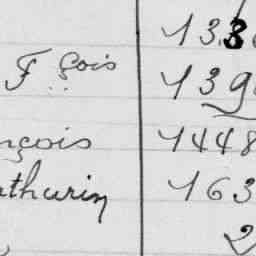 133
F çois 139
nçois 1448
athurin 163
2